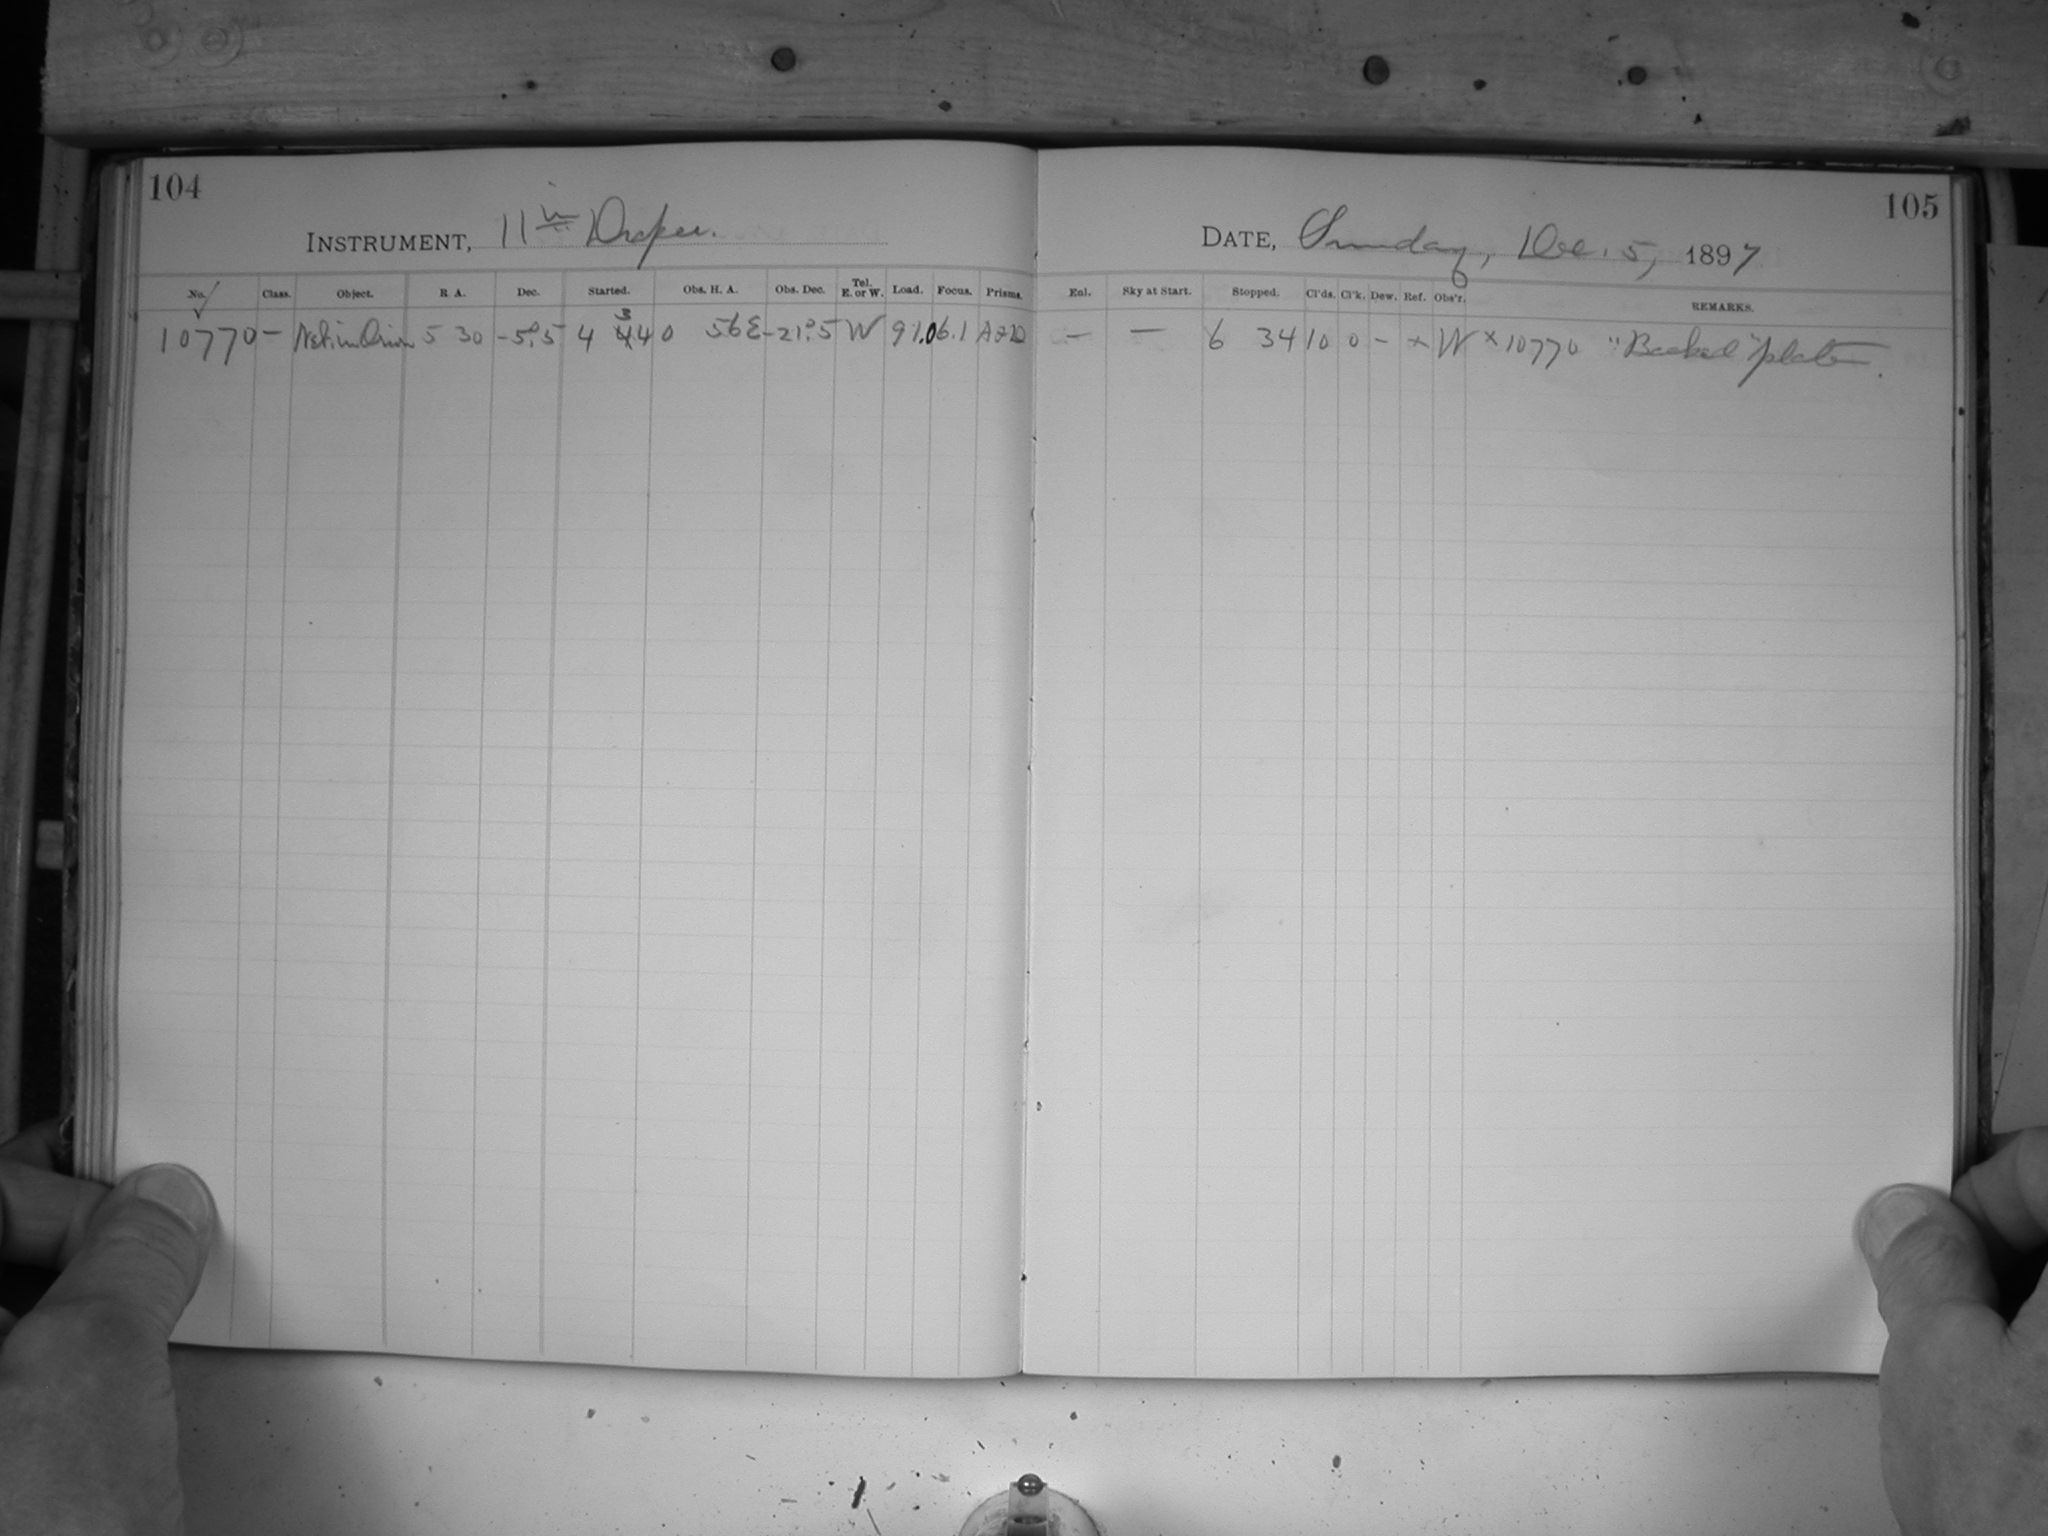 104
INSTRUMENT, 11 in Draper.
No. Class. Object. R. A. Dec. Started. Obs. H. A. Obs. Dec. Tel. E. or W. Load. Focus. Prisms.
10770 – Neb. in Orion 5 30 -5°.5 4 34 0 56 E -21°.5 W 91.0 6.1
105
DATE, Sunday, Dec. 5, 1897
Enl. Sky at Start. Stopped. Cl'ds. Cl'k. Dew. Ref. Obs'r. REMARKS.
– – 6 34 10 0 – × W × 10770 "Backed" plate.